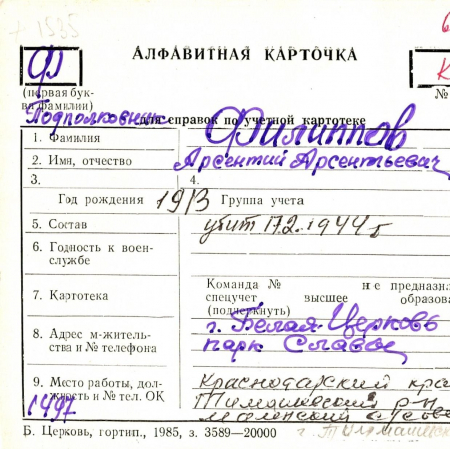 1535
АЛФАВИТНАЯ КАРТОЧКА
Ф
(первая бук-
ва фамилии)
К
№
для справок по учетной картотеке
Подполковник
1. Фамилия Филиппов
2. Имя, отчество Арсентий Арсентьевич
3. 4.
Год рождения 1913 Группа учета
5. Состав убит 17.2.1944 г
6. Годность к воен-
службе
Команда № не предназна
7. Картотека спецучет высшее образова
(подчеркнуть)
8. Адрес м-житель- г. Белая Церковь
ства и № телефона парк Славы
9. Место работы, дол- Краснодарский кра
жность и № тел. ОК Тимашевский р-н
1497
Б. Церковь, гортип., 1985, з. 3589—20000